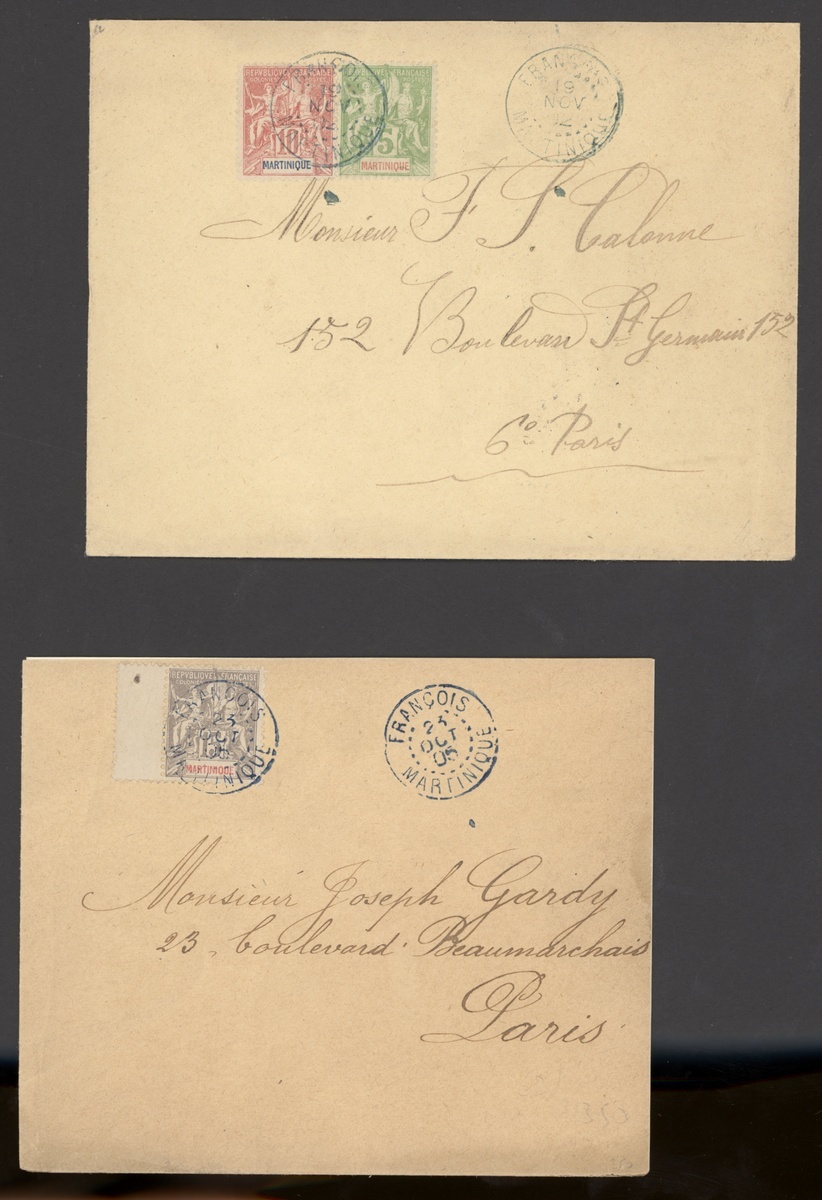 REPUBLIQUE FRANÇAISE
10
MARTINIQUE
REPUBLIQUE FRANÇAISE
5
MARTINIQUE
FRANÇOIS
19
NOV
MARTINIQUE
FRANÇOIS
19
NOV
MARTINIQUE
Monsieur F. S. Calonne
152 Boulevard St Germain 152
6e Paris
REPUBLIQUE FRANÇAISE
MARTINIQUE
FRANÇOIS
23
OCT
05
MARTINIQUE
FRANÇOIS
23
OCT
05
MARTINIQUE
Monsieur Joseph Gardy
23, boulevard Beaumarchais
Paris